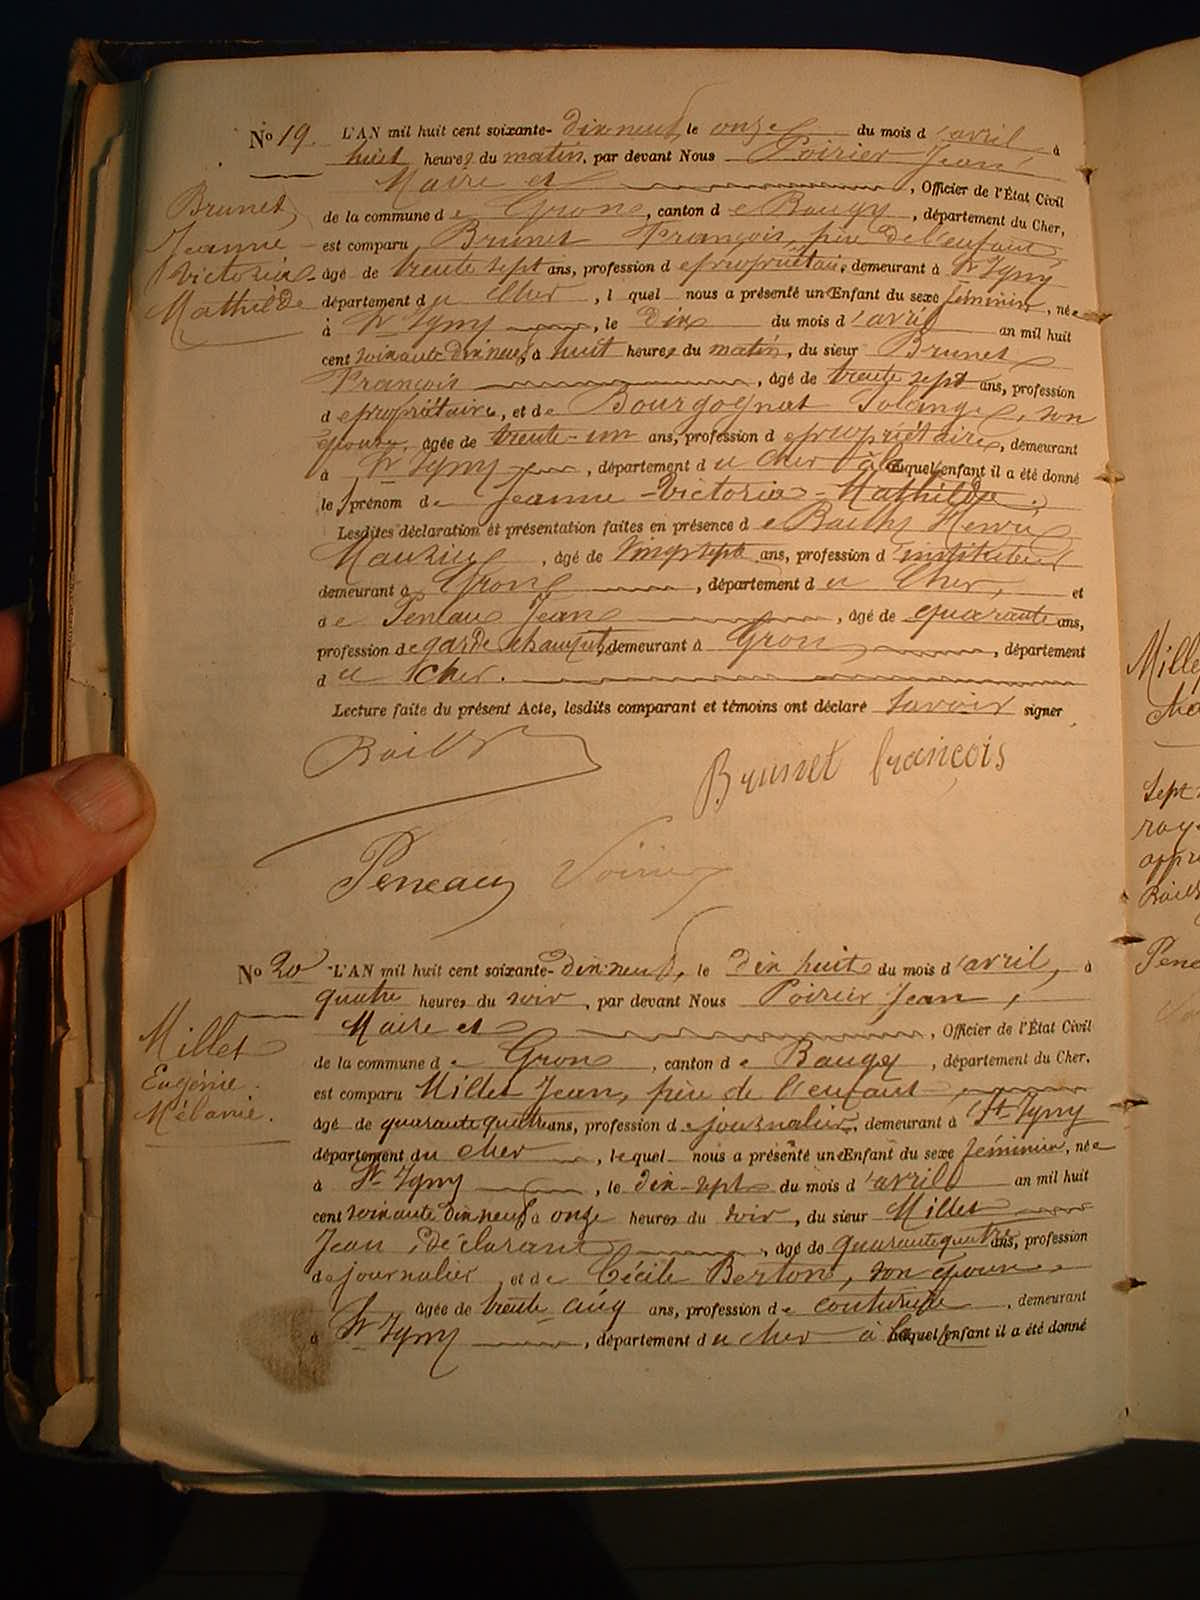 No 19. L'AN mil huit cent soixante-dix neuf, le onze du mois d'avril à
huit heures du matin, par devant Nous Poirier Jean
Maire et , Officier de l'État Civil
de la commune de Gron, canton de Baugy, département du Cher,
est comparu Brunet François, père de l'enfant
âgé de trente sept ans, profession de propriétaire, demeurant à St Igny
département du Cher, lequel nous a présenté un Enfant du sexe féminin, née
à St Igny, le dix du mois d'avril an mil huit
cent soixante dix neuf à huit heures du matin, du sieur Brunet
François, âgé de trente sept ans, profession
de propriétaire, et de Bourgognat Solange, son
épouse, âgée de trente-un ans, profession de propriétaire, demeurant
à St Igny, département du Cher à laquel enfant il a été donné
le prénom de Jeanne-Victoria-Mathilde.
Lesdites déclaration et présentation faites en présence de Bailly Henri
, âgé de vingt sept ans, profession d'instituteur
demeurant à Gron, département du Cher, et
de Peneau Jean, âgé de quarante ans,
profession de garde champêt, demeurant à Gron, département
du Cher.
Lecture faite du présent Acte, lesdits comparant et témoins ont déclaré savoir signer
Brunet
Jeanne
Victoria
Mathilde
Bailly
Brunet françois
Peneau Poirier
No 20 L'AN mil huit cent soixante-dix neuf, le dix huit du mois d'avril, à
quatre heures du soir, par devant Nous Poirier Jean,
Maire et , Officier de l'État Civil
de la commune de Gron, canton de Baugy, département du Cher,
est comparu Millet Jean, père de l'enfant
âgé de quarante quatre ans, profession de journalier, demeurant à St Igny
département du Cher, lequel nous a présenté un Enfant du sexe féminin, née
à St Igny, le dix-sept du mois d'avril an mil huit
cent soixante dix neuf à onze heures du soir, du sieur Millet
Jean, déclarant, âgé de quarante quatre ans, profession
de journalier, et de Cécile Berton, son épouse,
âgée de trente cinq ans, profession de couturière, demeurant
à St Igny, département du Cher à laquel enfant il a été donné
Millet
Eugénie.
Mélanie.
Sept
Pene